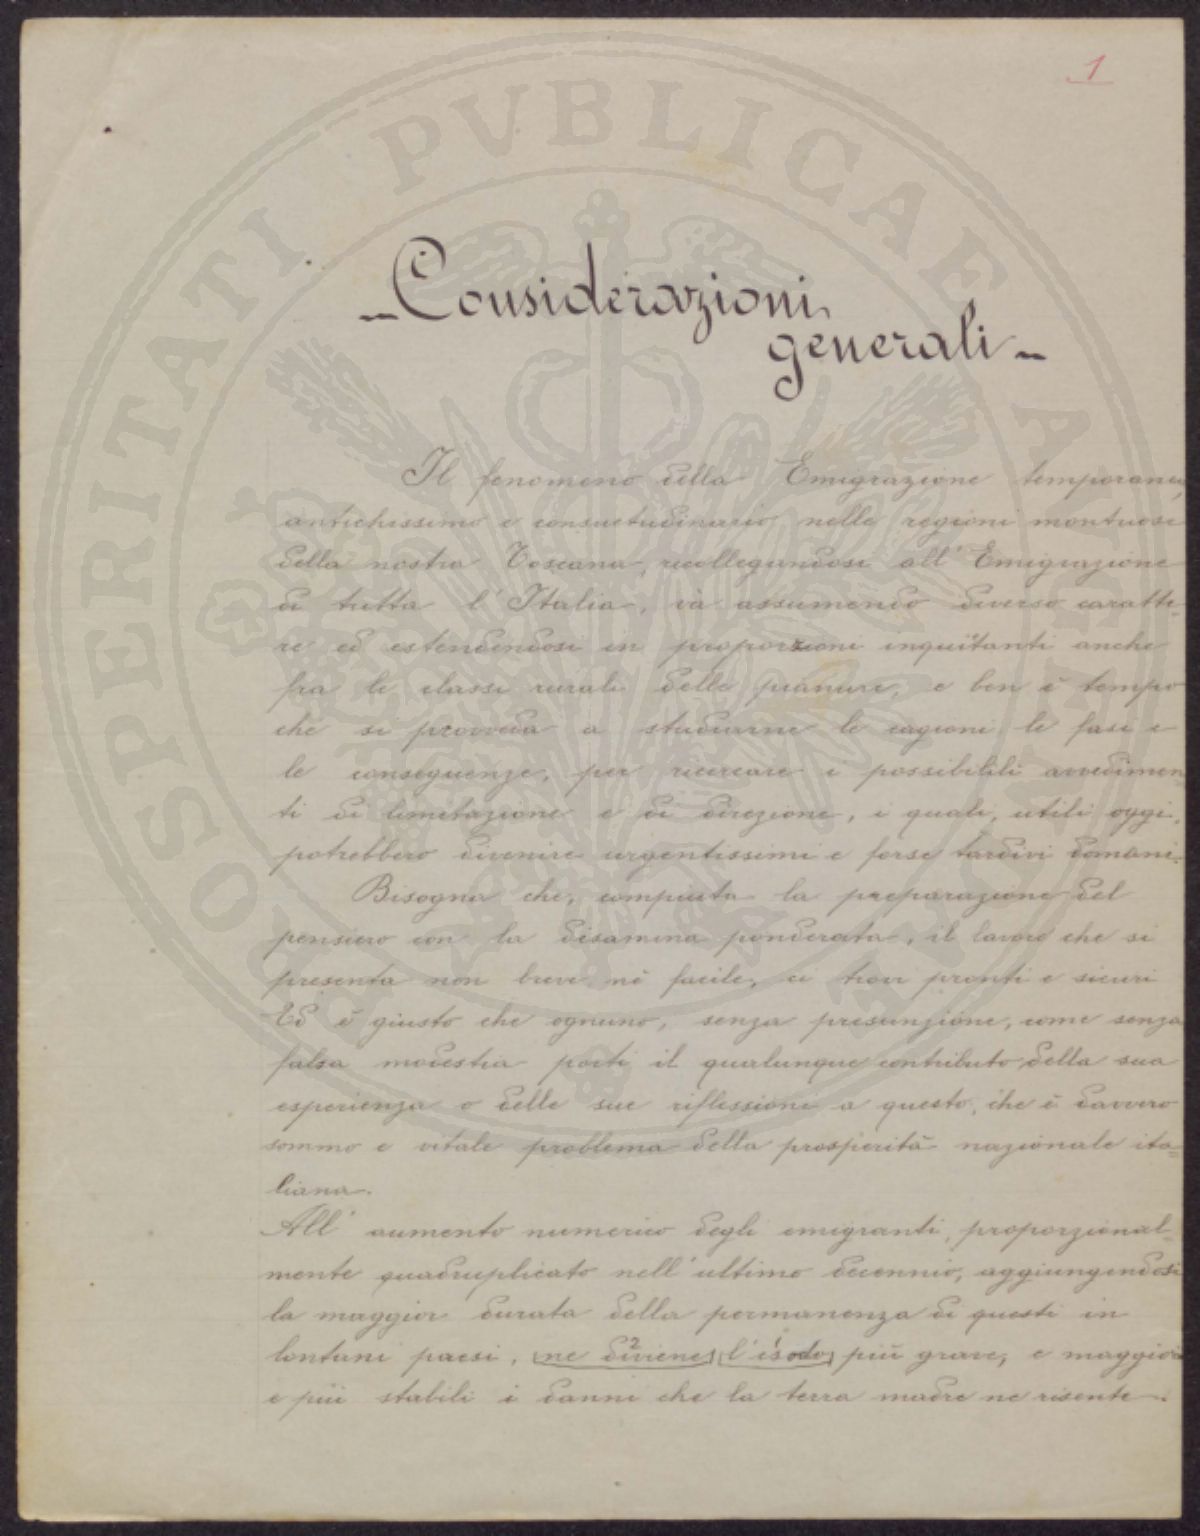 1
Considerazioni
generali
Il fenomeno della Emigrazione temporanea,
antichissimo e consuetudinario nelle regioni montuose
della nostra Toscana, ricollegandosi all'Emigrazione
di tutta l'Italia, và assumendo diverso caratte-
re ed estendendosi in proporzioni inquietanti anche
fra le classi rurali delle pianure, e ben è tempo
che si provveda a studiarne le cagioni le fasi e
le conseguenze, per ricercare i possibilili avvedimen-
ti di limitazione e di direzione, i quali, utili oggi,
potrebbero divenire urgentissimi e forse tardivi domani.
Bisogna che, compiuta la preparazione del
pensiero con la disamina ponderata, il lavoro che si
presenta non breve nè facile, ci trovi pronti e sicuri
Ed è giusto che ognuno, senza presunzione, come senza
falsa modestia porti il qualunque contributo della sua
esperienza o delle sue riflessioni a questo, che è davvero
sommo e vitale problema della prosperità nazionale ita=
liana.
All'aumento numerico degli emigranti, proporzional=
mente quadruplicato nell'ultimo decennio, aggiungendosi
la maggior durata della permanenza di questi in
lontani paesi, ne diviene 2 l'esodo 1 più grave, e maggiori
e più stabili i danni che la terra madre ne risente.
PROSPERITATI PVBLICAE AVGENDAE